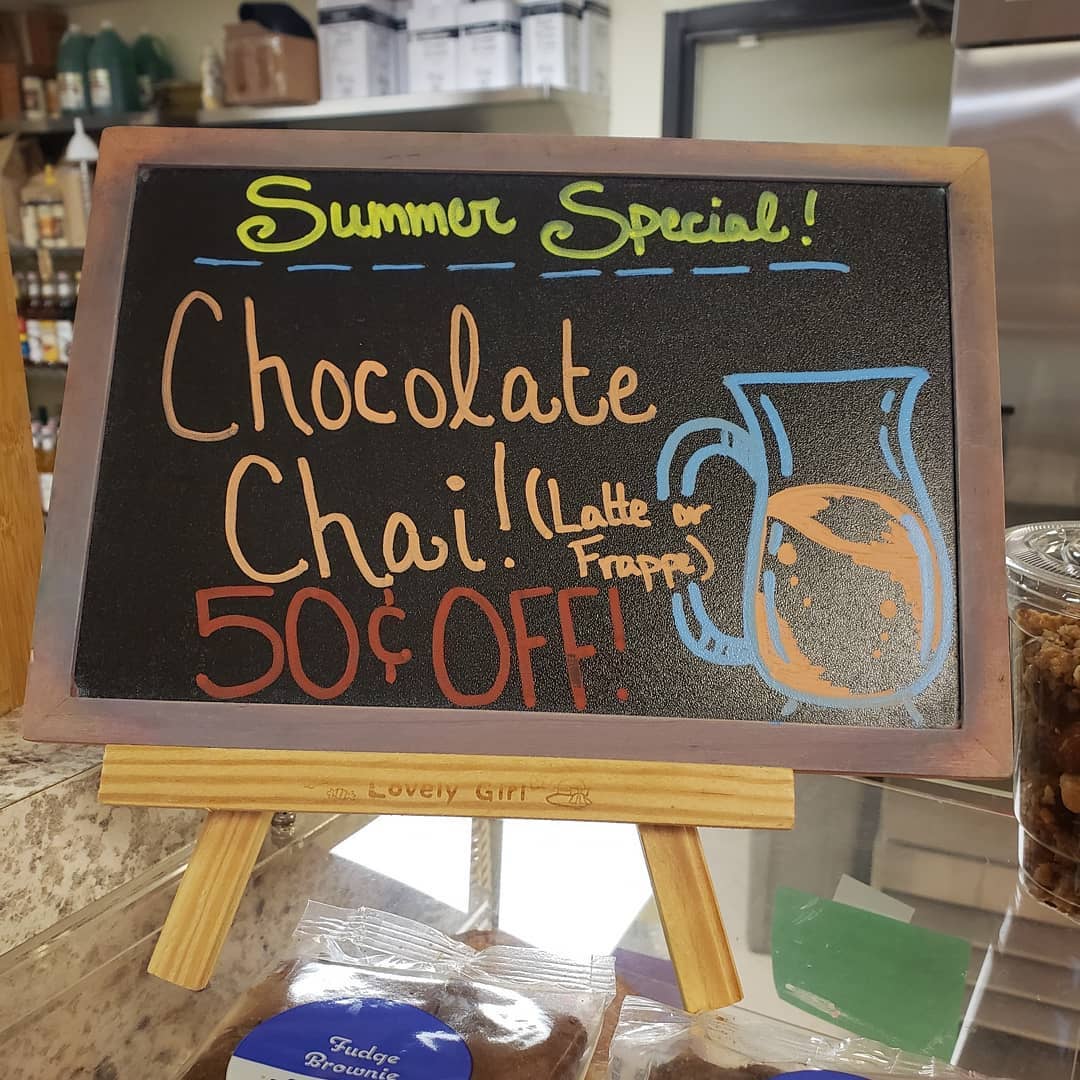 Summer Special!
Chocolate
Chai! (Latte or
Frappe)
50¢ OFF!
Lovely Girl
Fudge
Brownie